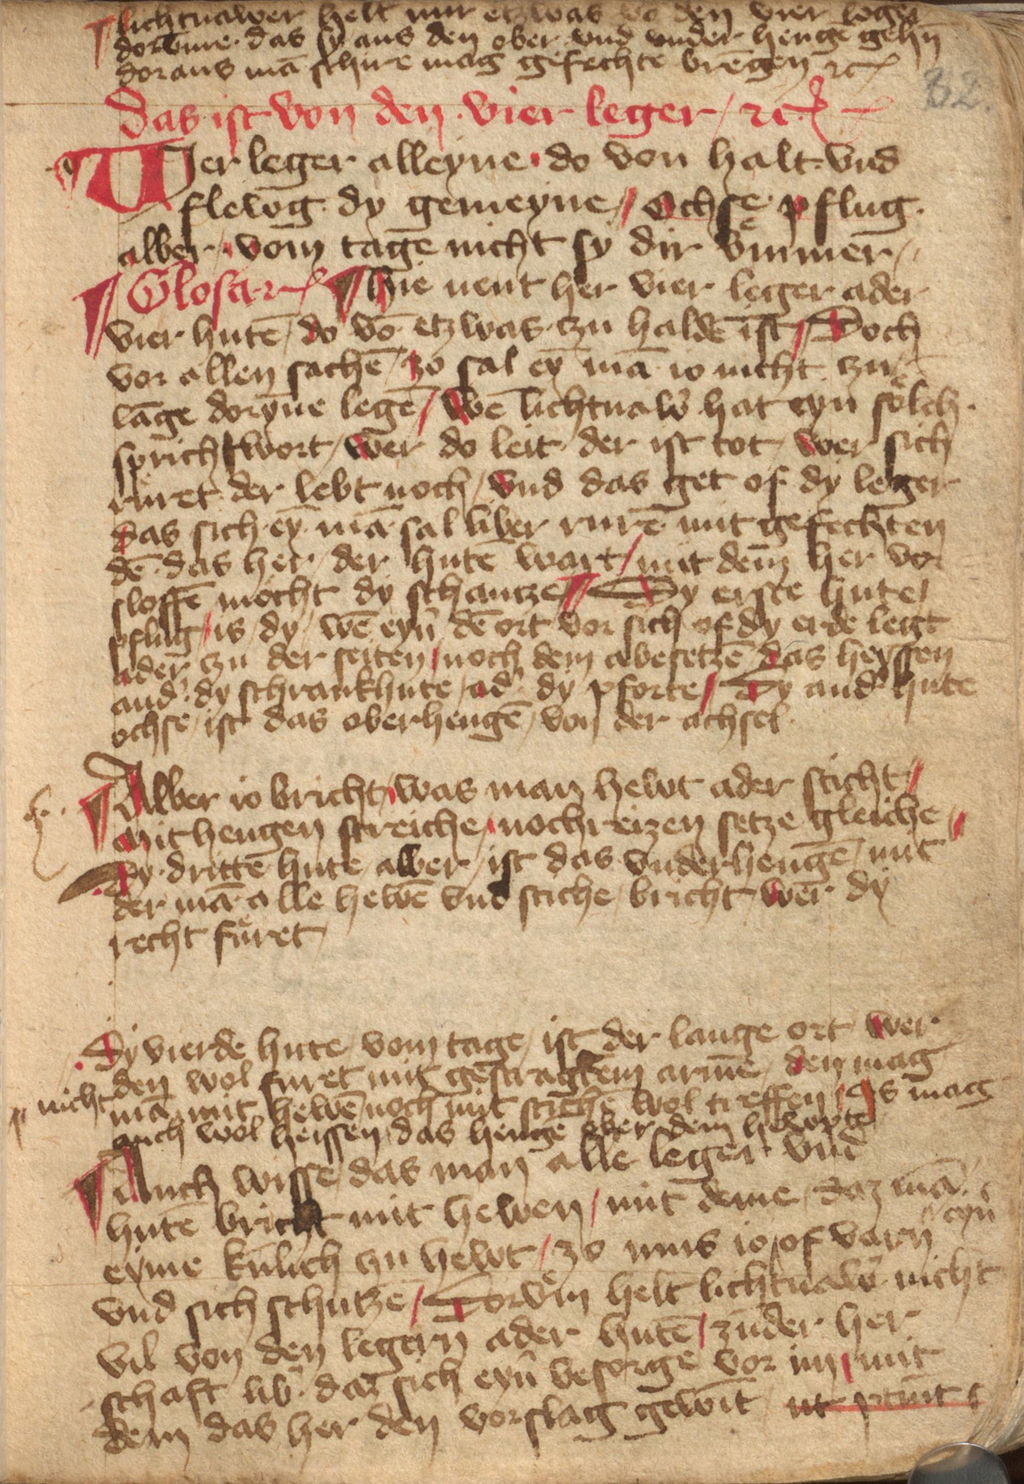 lichtnawer helt nur etzwas vō den vier leger
dorvme das sy aus den ober vnd vnder henge gehn
doraus mā schire mag gefechte brēgen ꝛc
32.
Das ist von den vier leger / ꝛc
Vier leger alleyne do von halt vnd
flewg dy gemeyne / Ochse pflug
alber / vom tage nicht sy dir vmmer /
Glosa ꝛ hie nent her vier leger ader
vier hutē / do vō etzwas zu haldē ist / Doch
vor allen sachē / zo sal eyn mā io nicht zu
lāge doryne legē / Wē lichtnaw̄ hat eyn sölch
sprichwort / wer do leit der ist tot / wer sich
rüret der lebt noch / vnd das get of dy leger
das sich eyn mā sal liber rurē mit gefechten
dē das her der hute wart / mit dem her vor
sloffē mocht dy schantze / Dy erste hute
pflug / is dy / wē eyn̄ dē ort vor sich of dy erde legt
ader zu der seiten / noch dem abesetzē das heyssen
and' dy schrankhute / ad' dy pforte / Dy and' hute
ochse / ist das oberhengē / von der achsel
Alber io bricht / was man hewt ader sticht /
Mit hengen streiche / nochreizen setze gleiche /
Dy dritte hute alber / ist das vnderhengē / mit
der mā alle hewē vnd stiche bricht wer dy
recht füret
Dy vierde hute / vom tage / ist der lange ort / wer
den wol furet mit gestragktem armē / den mag
nicht mā mit hewē noch mit stichē wol treffen / Is mag
auch wol heissen das henge ober dem hewpte
Auch wisse / das man alle leger vnd
hutē bricht mit hewen / mit deme / daz mā
eyme künlich zu hewt / zo mus io of varn eyn̄
vnd sich schutzē / Dorvm helt lichtnaw̄ nicht
vil von den legern ader hutē / zunder her
schaft lib' daz sich eyn̄ besorge vor im / mit
dem das her den vorslag gewīt